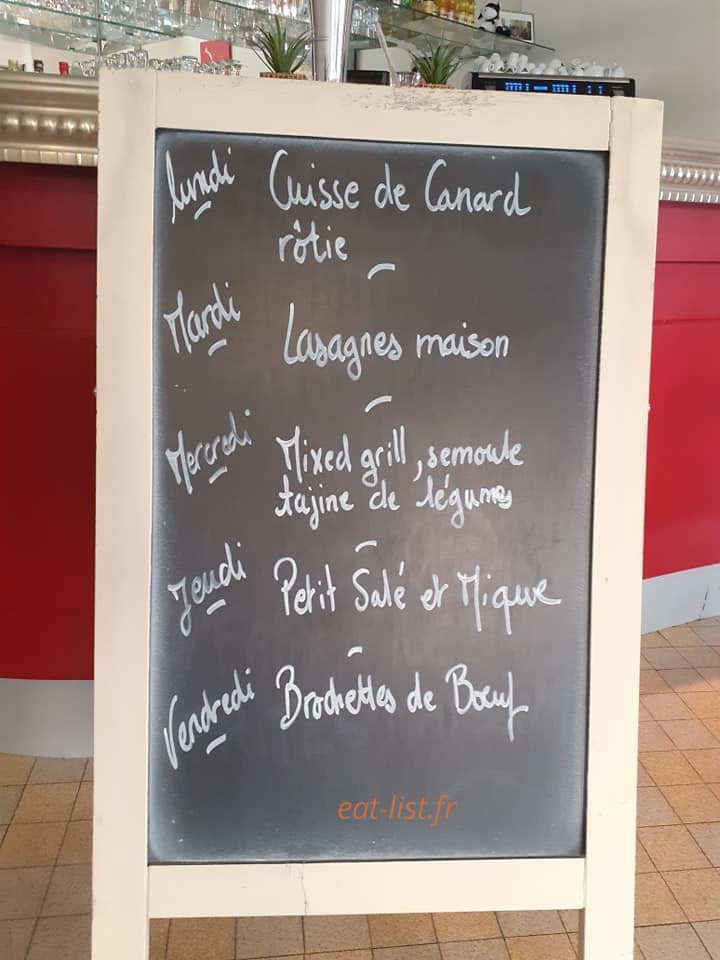 lundi Cuisse de Canard
rôtie
Mardi Lasagnes maison
Mercredi Mixed grill, semoule
tajine de légumes
Jeudi Petit Salé et Mique
Vendredi Brochettes de Bœuf
eat-list.fr